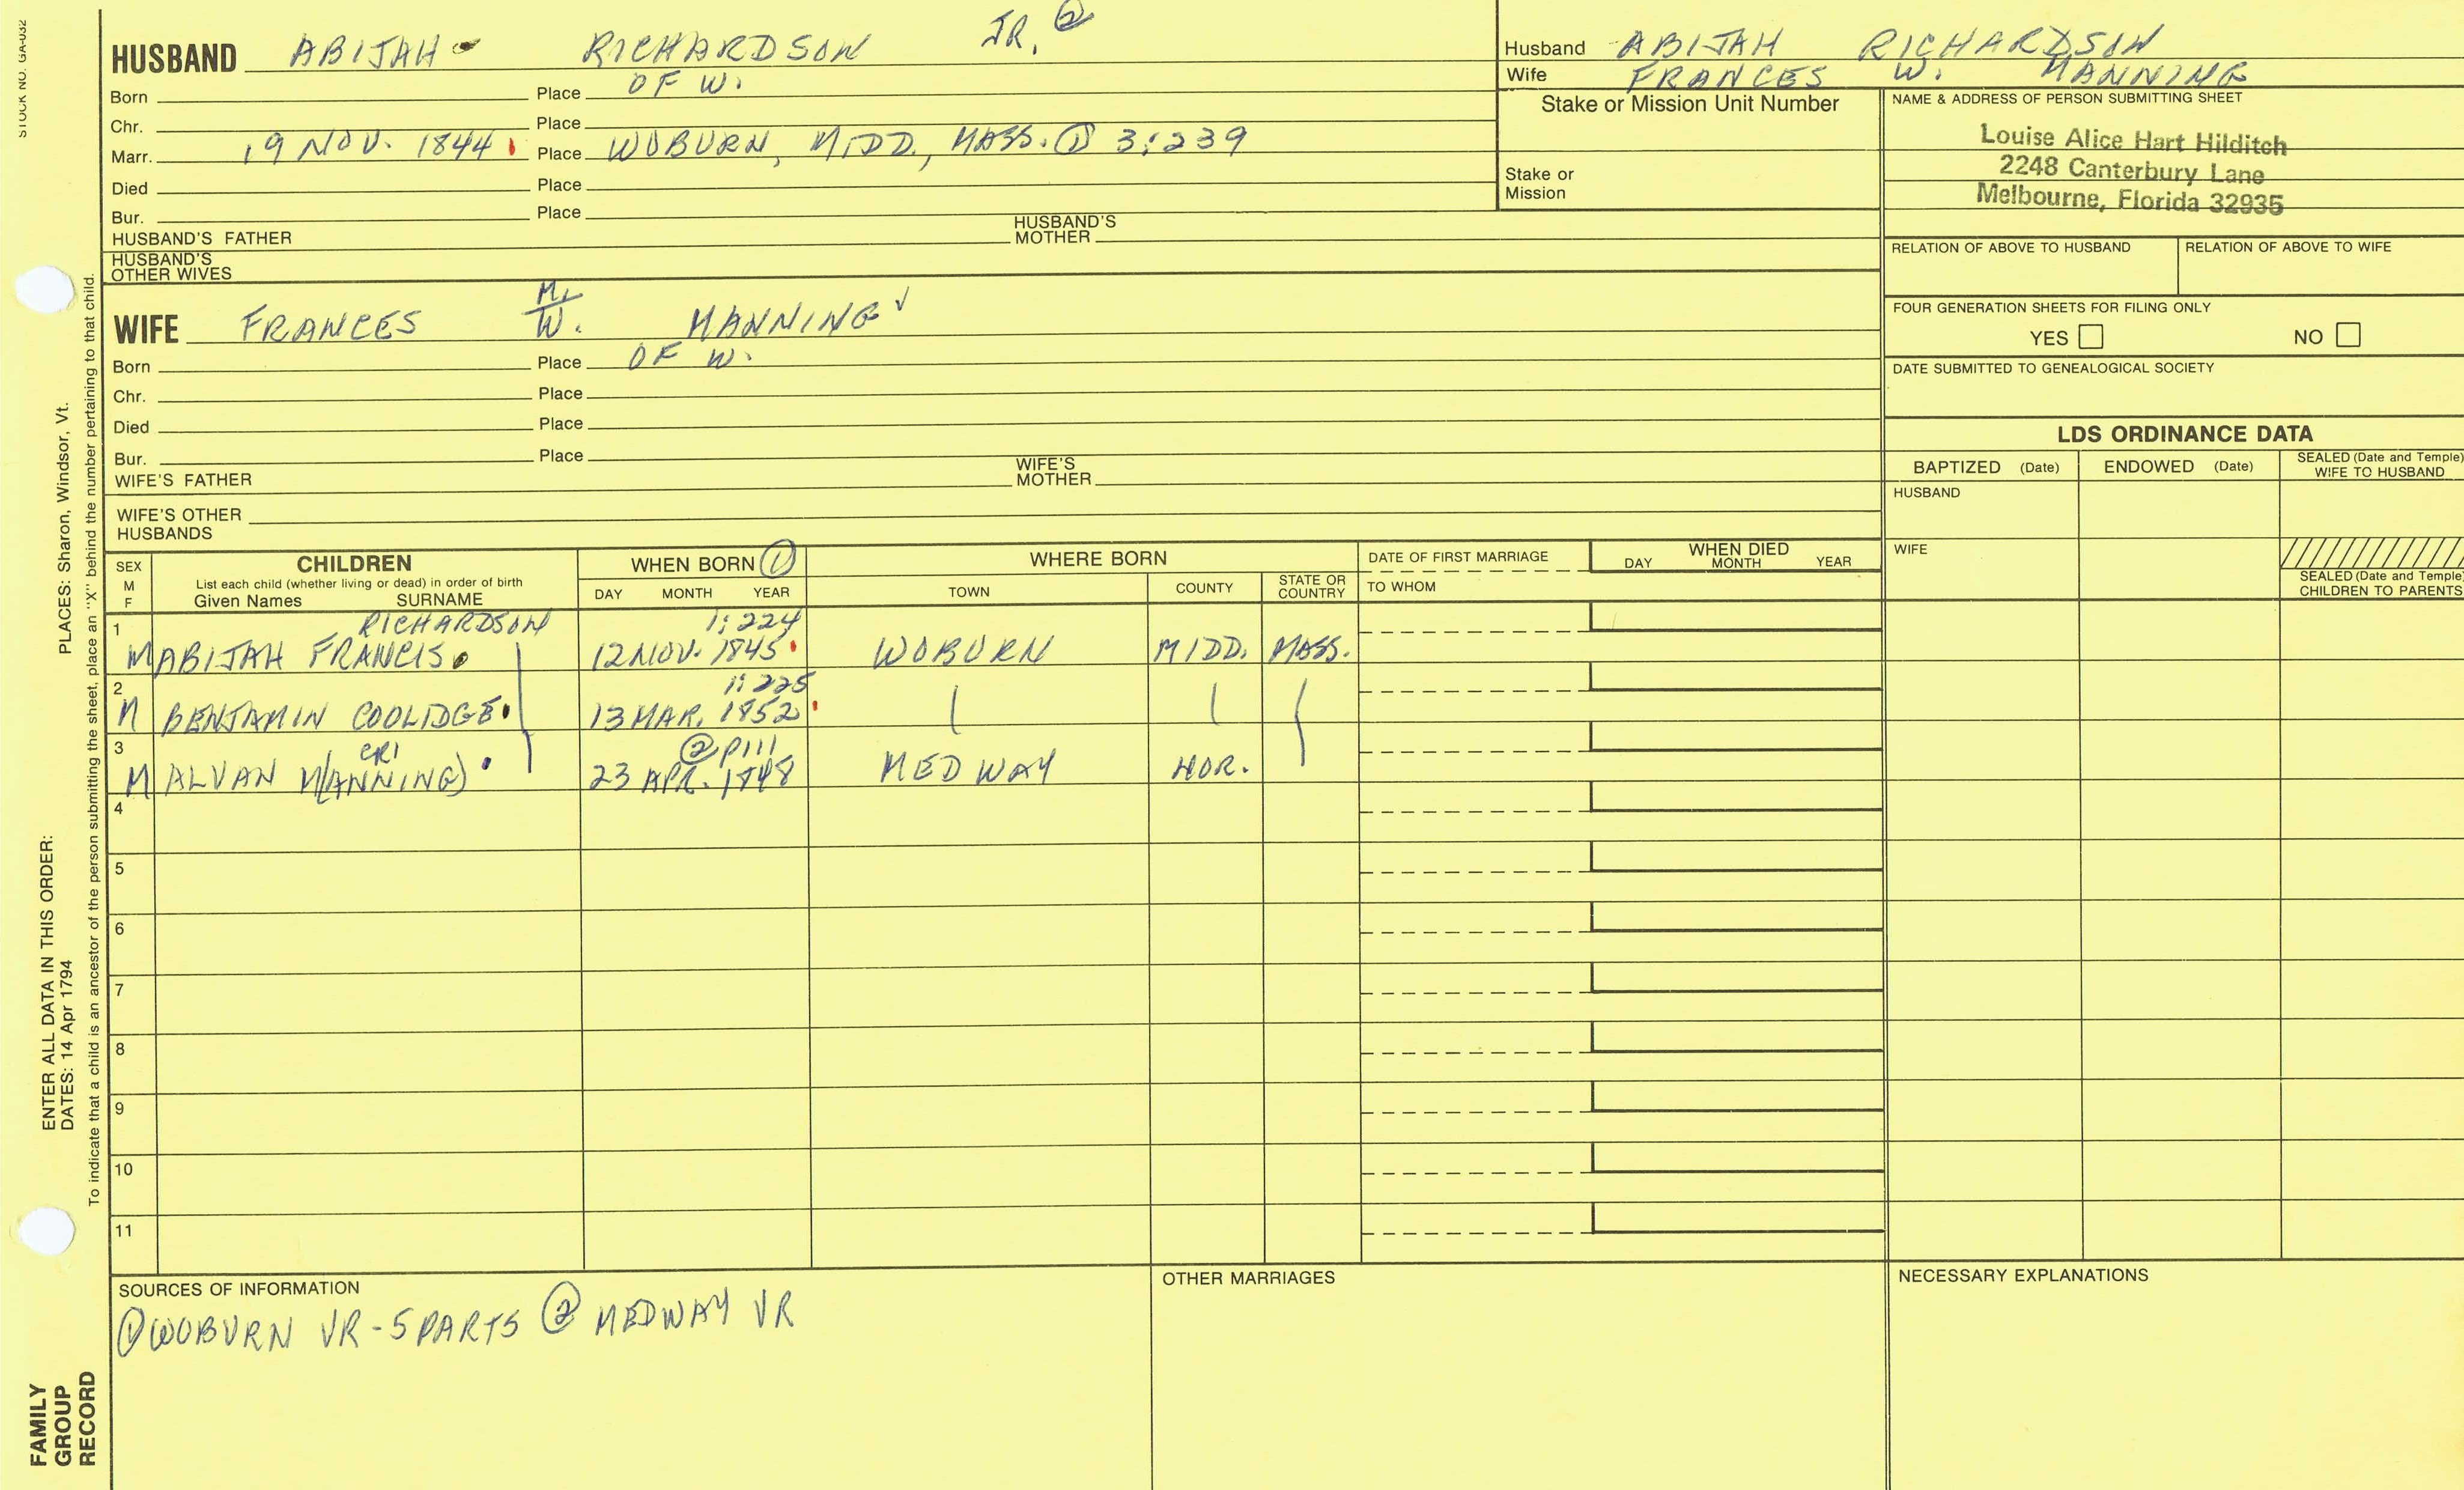 STOCK NO. GA-032
HUSBAND ABIJAH RICHARDSON JR. ②
Born Place OF W.
Chr. Place
Marr. 19 NOV. 1844 Place WOBURN, MIDD., MASS. ① 3:239
Died Place
Bur. Place
HUSBAND'S FATHER HUSBAND'S MOTHER
HUSBAND'S OTHER WIVES
Husband ABIJAH RICHARDSON
Wife FRANCES W. MANNING
Stake or Mission Unit Number
Stake or
Mission
NAME & ADDRESS OF PERSON SUBMITTING SHEET
Louise Alice Hart Hilditch
2248 Canterbury Lane
Melbourne, Florida 32935
RELATION OF ABOVE TO HUSBAND RELATION OF ABOVE TO WIFE
FOUR GENERATION SHEETS FOR FILING ONLY
YES NO
DATE SUBMITTED TO GENEALOGICAL SOCIETY
M.
WIFE FRANCES W. MANNING ✓
Born Place OF W.
Chr. Place
Died Place
Bur. Place
WIFE'S FATHER WIFE'S MOTHER
WIFE'S OTHER
HUSBANDS
LDS ORDINANCE DATA
BAPTIZED (Date) ENDOWED (Date) SEALED (Date and Temple) WIFE TO HUSBAND
HUSBAND
WIFE
SEALED (Date and Temple) CHILDREN TO PARENTS
SEX M F
CHILDREN
List each child (whether living or dead) in order of birth
Given Names SURNAME
WHEN BORN ①
DAY MONTH YEAR
WHERE BORN
TOWN COUNTY STATE OR COUNTRY
DATE OF FIRST MARRIAGE
TO WHOM
WHEN DIED
DAY MONTH YEAR
1 RICHARDSON 1:224
M ABIJAH FRANCIS 12 NOV. 1845 WOBURN MIDD. MASS.
2 1:225
M BENJAMIN COOLIDGE 13 MAR. 1852
3 CR1 ② P111
M ALVAN M(ANNING) 23 APR. 1848 MEDWAY NOR.
4
5
6
7
8
9
10
11
SOURCES OF INFORMATION
① WOBURN VR - 5 PARTS ② MEDWAY VR
OTHER MARRIAGES
NECESSARY EXPLANATIONS
FAMILY
GROUP
RECORD
ENTER ALL DATA IN THIS ORDER:
DATES: 14 Apr 1794
PLACES: Sharon, Windsor, Vt.
To indicate that a child is an ancestor of the person submitting the sheet, place an "X" behind the number pertaining to that child.